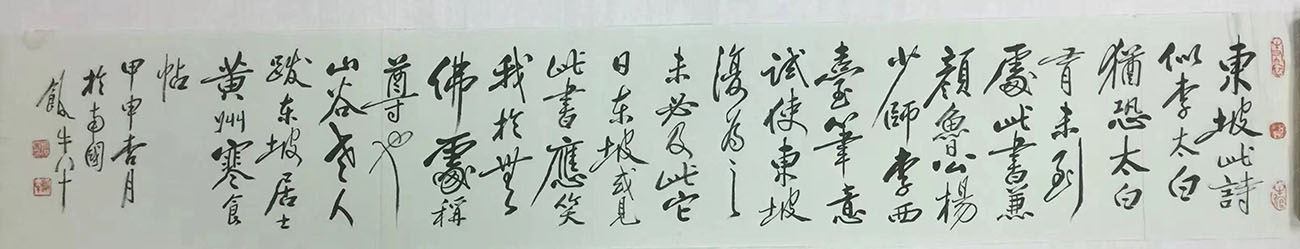 東坡此詩
似李太白
猶恐太白
有未到
處此書兼
顔魯公楊
少師李西
臺筆意
試使東坡
復為之
未必及此它
日東坡或見
此書應笑
我於無
佛處稱
尊也
山谷老人
跋東坡居士
黄州寒食
帖
甲申杏月
於南國
飯牛